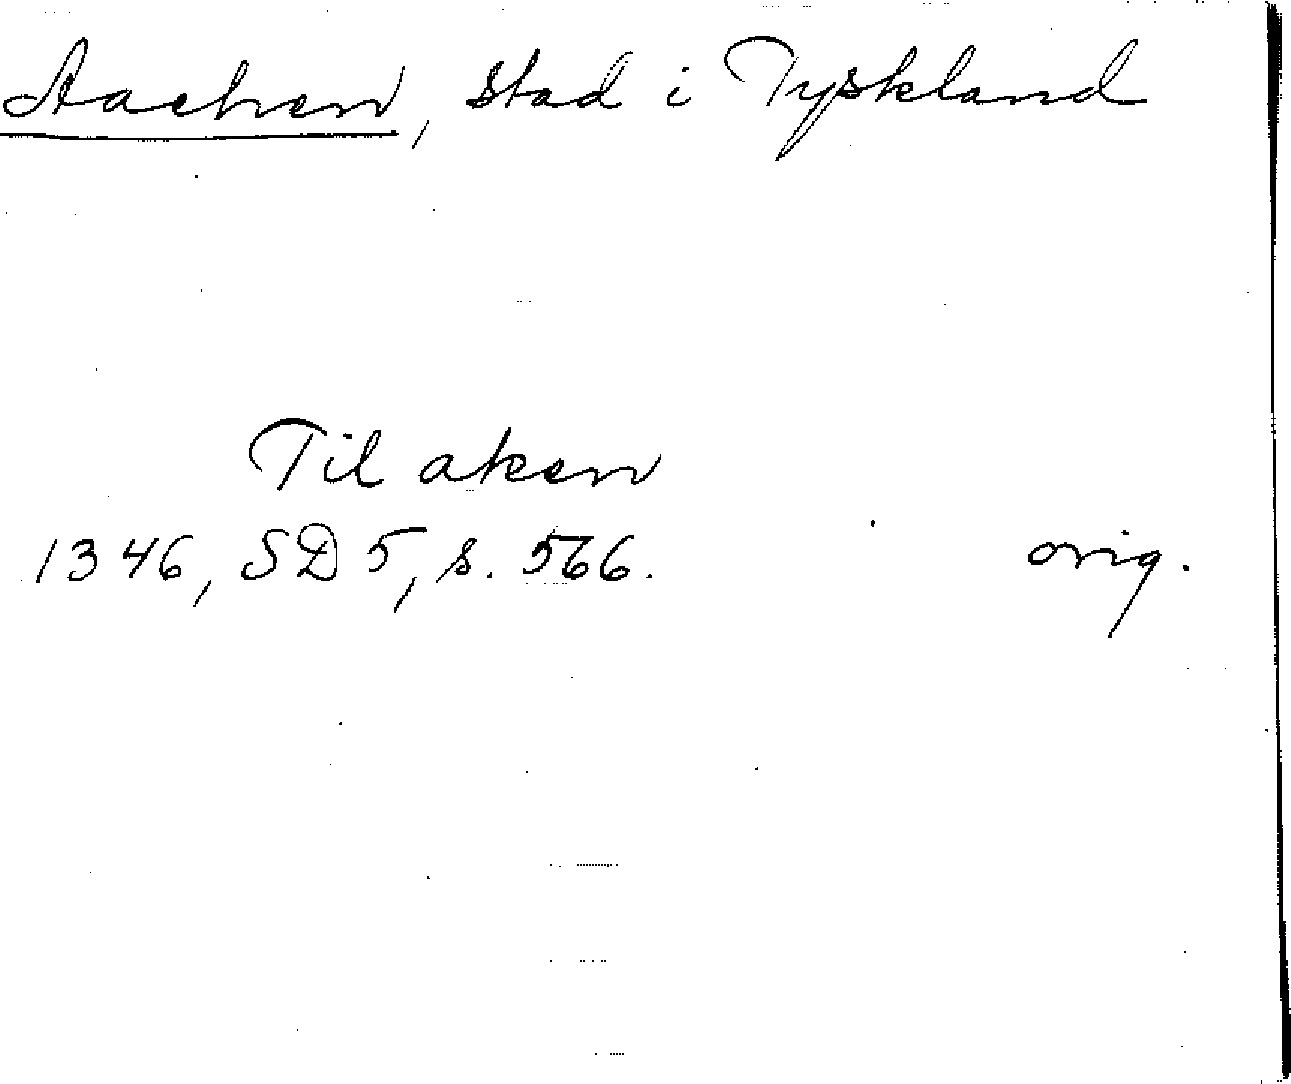 Aachen, stad i Tyskland
Til aken
1346, SD 5, s. 566. orig.